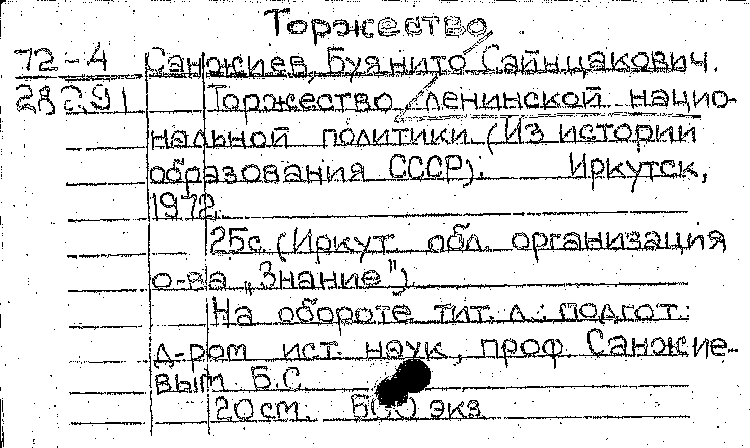 Торжество
72-4 Санжиев, Буянито Сайнцакович.
28291 Торжество ленинской нацио-
нальной политики. (Из истории
образования СССР). Иркутск,
1972.
25с. (Иркут. обл. организация
о-ва „Знание")
На обороте тит. л.: подгот.
д-ром ист. наук, проф. Санжие-
вым Б.С.
20см. экз.